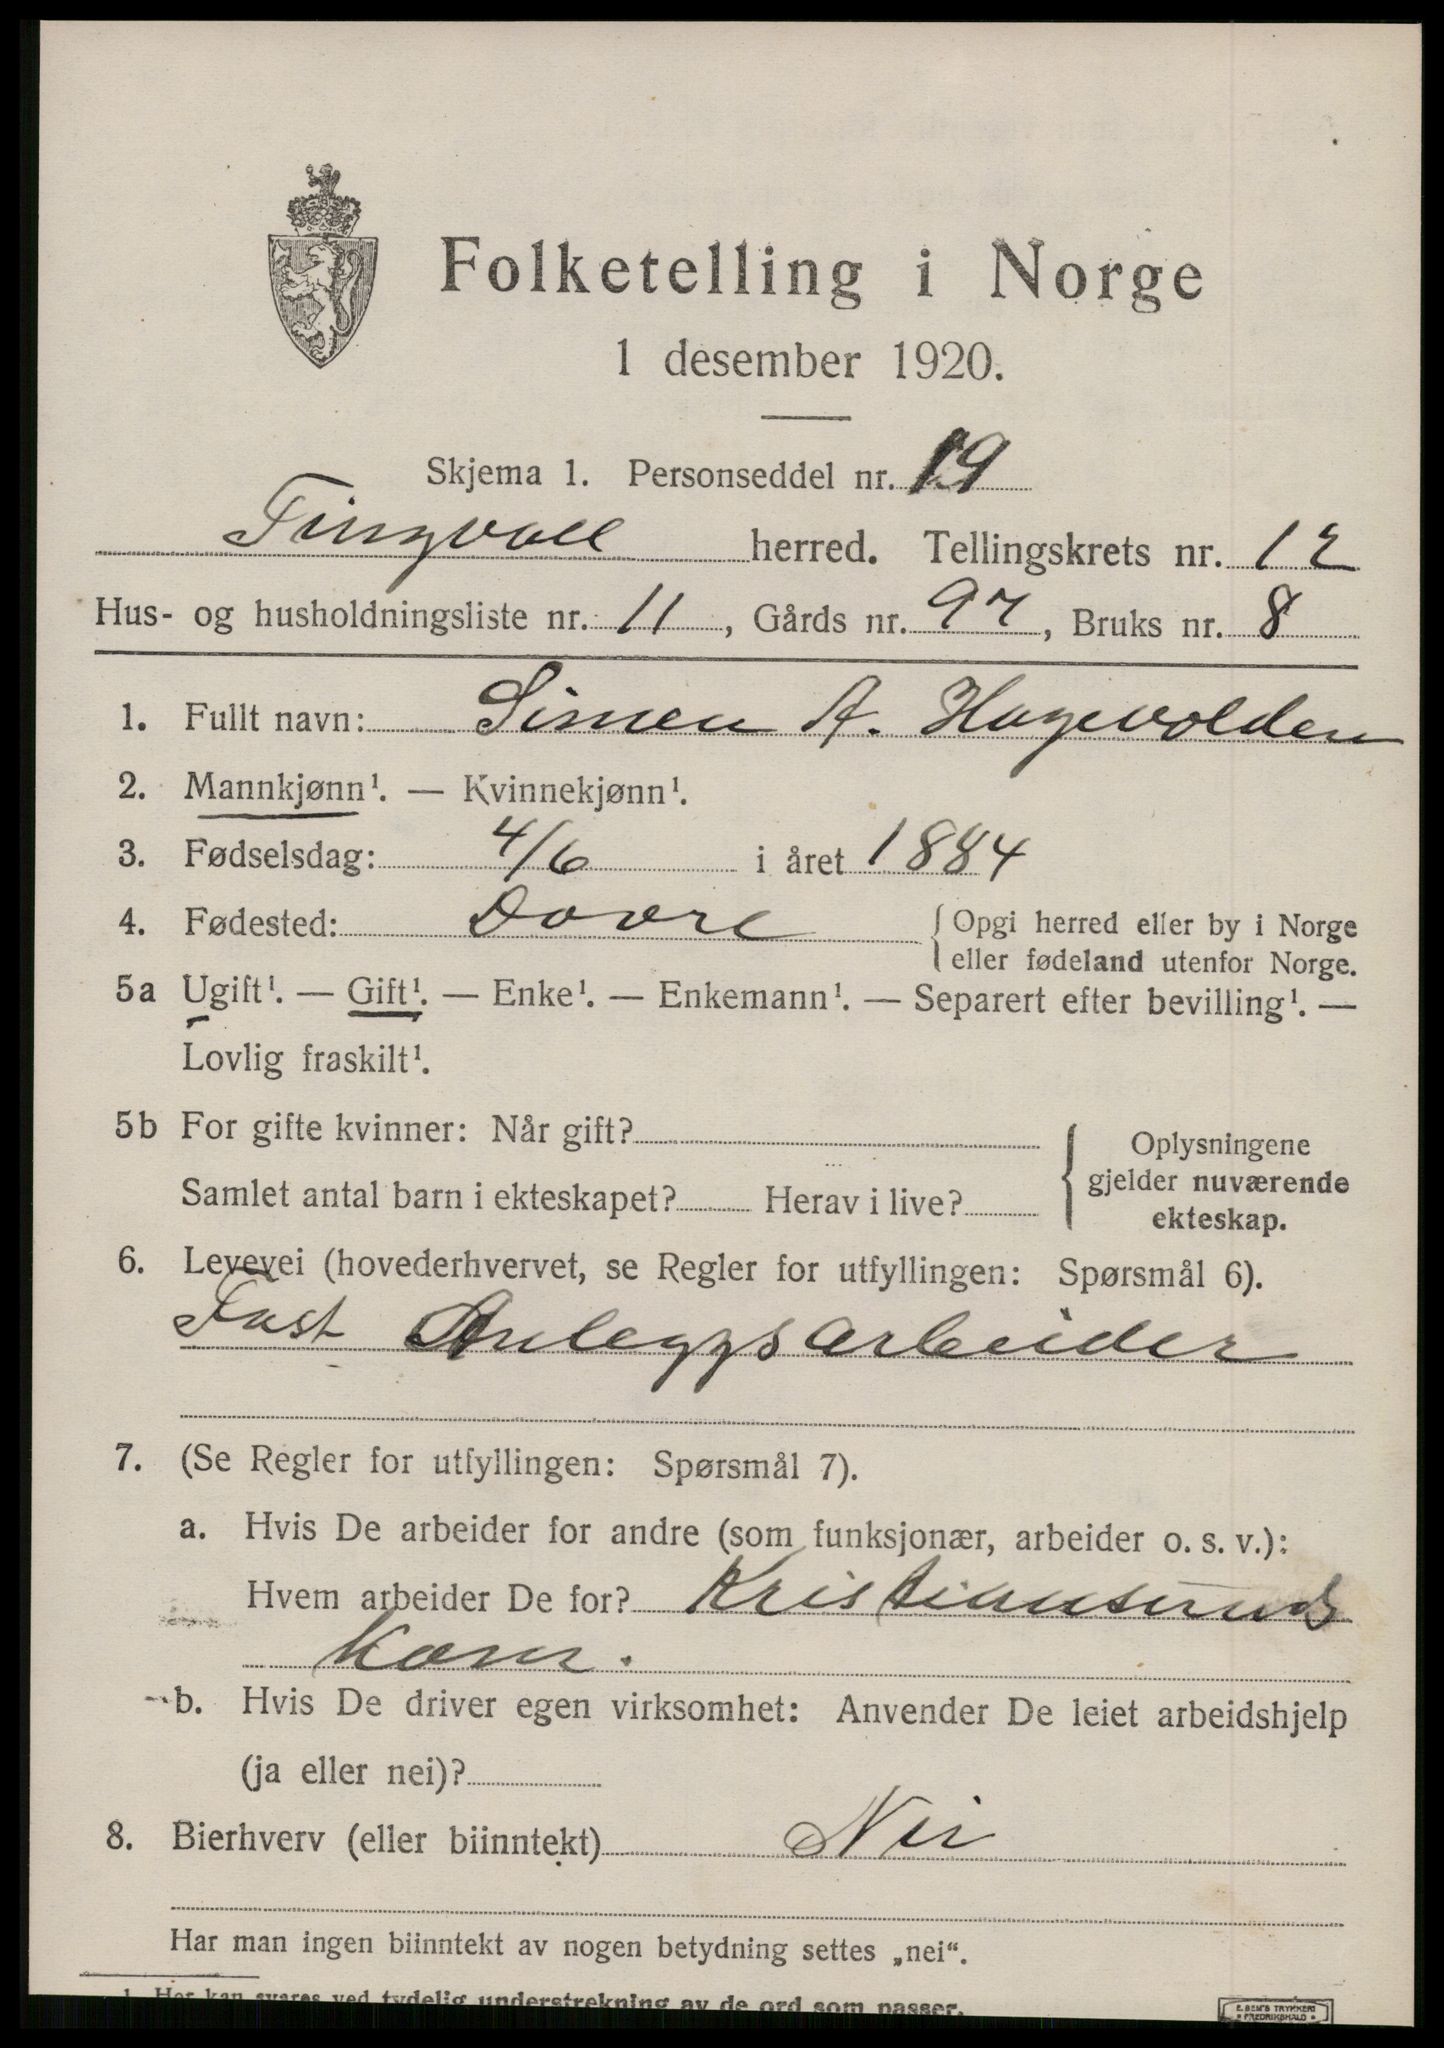 Folketelling i Norge
1 desember 1920.
Skjema 1. Personseddel nr. 19
Tingvoll herred. Tellingskrets nr. 12
Hus- og husholdningsliste nr. 11, Gårds nr. 97, Bruks nr. 8
1. Fullt navn: Simen A. Hagevolden
2. Mannkjønn¹. — Kvinnekjønn¹.
3. Fødselsdag: 4/6 i året 1884
4. Fødested: Dovre { Opgi herred eller by i Norge
eller fødeland utenfor Norge.
5a Ugift¹. — Gift¹. — Enke¹. — Enkemann¹. — Separert efter bevilling¹. —
Lovlig fraskilt¹.
5b For gifte kvinner: Når gift?
Samlet antal barn i ekteskapet? Herav i live?
{ Oplysningene
gjelder nuværende
ekteskap.
6. Levevei (hovederhvervet, se Regler for utfyllingen: Spørsmål 6).
Fast Anleggsarbeider
7. (Se Regler for utfyllingen: Spørsmål 7).
a. Hvis De arbeider for andre (som funksjonær, arbeider o. s. v.):
Hvem arbeider De for? Kristiansunds
Kom.
b. Hvis De driver egen virksomhet: Anvender De leiet arbeidshjelp
(ja eller nei)?
8. Bierhverv (eller biinntekt) Nei
Har man ingen biinntekt av nogen betydning settes „nei“.
1. Her kan svares ved tydelig understrekning av de ord som passer.
E. SEM'S TRYKKERI
• FREDRIKSHALD •